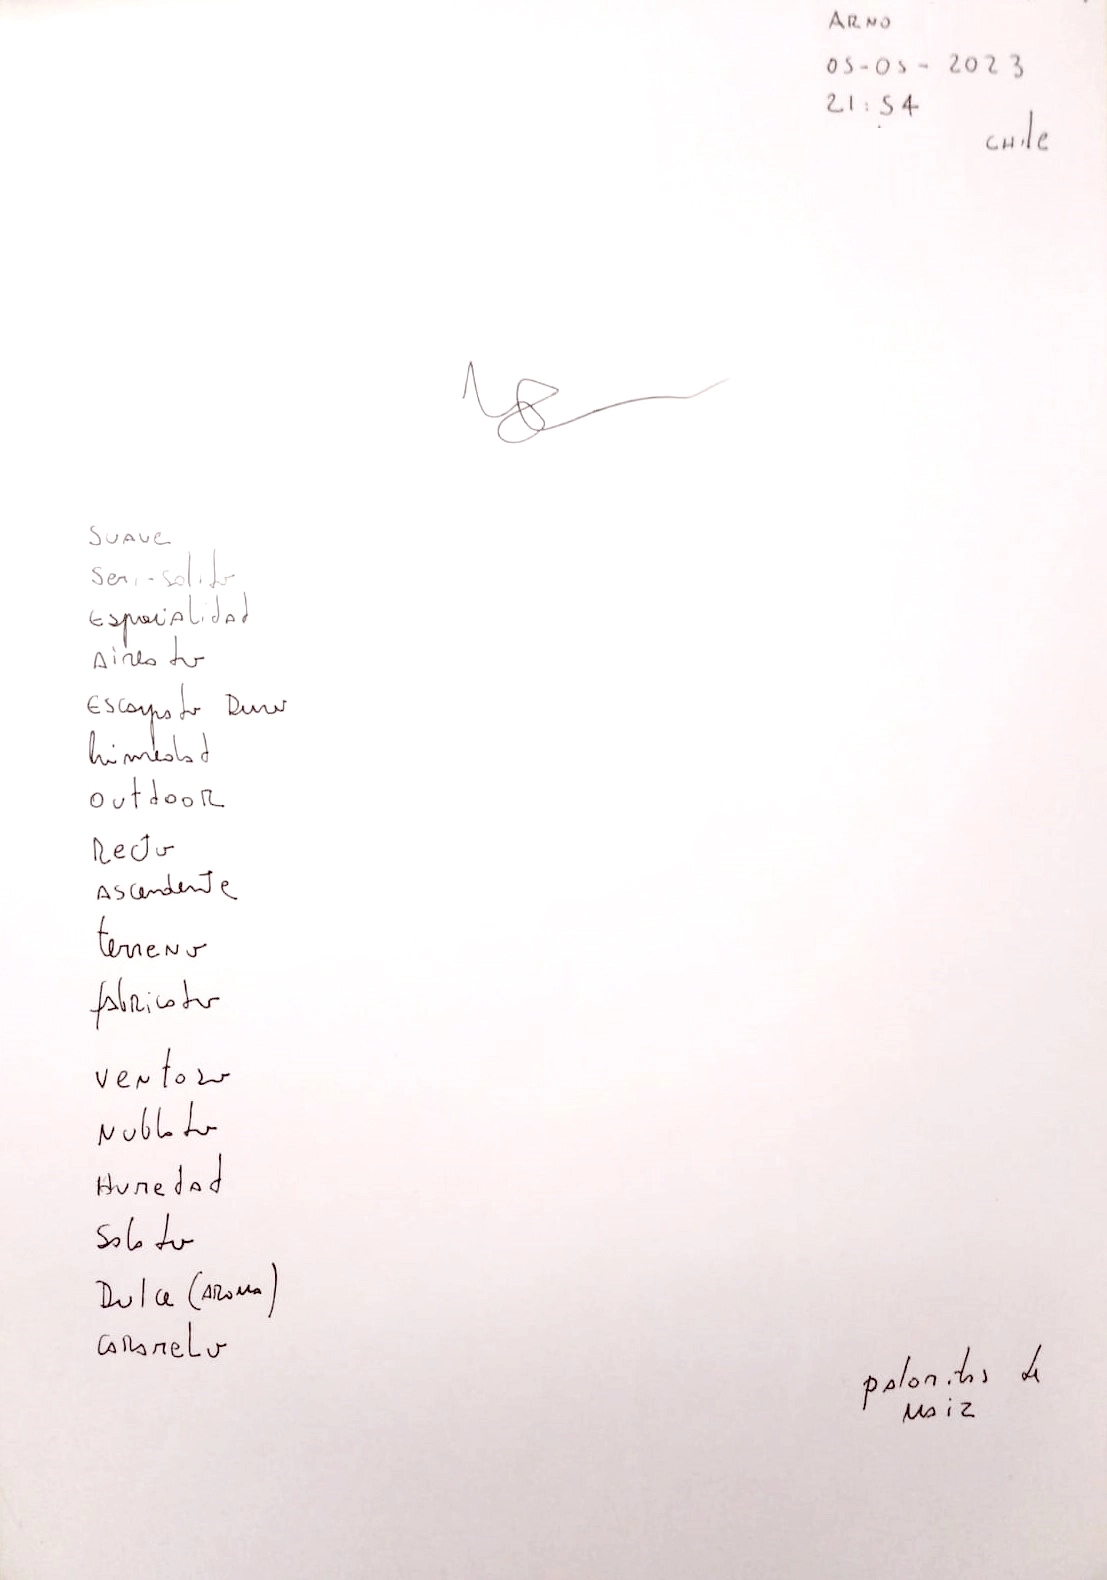 ARNO
05-05-2023
21:54
CHile
Suave
Semi-solido
Espacialidad
Aireado
Escarpado Duro
himedad
outdoor
Recto
Ascendente
terreno
fabricado
ventoso
Nublado
Humedad
Salado
Dulce (AROMA)
caramelo
palomitas de
Maiz